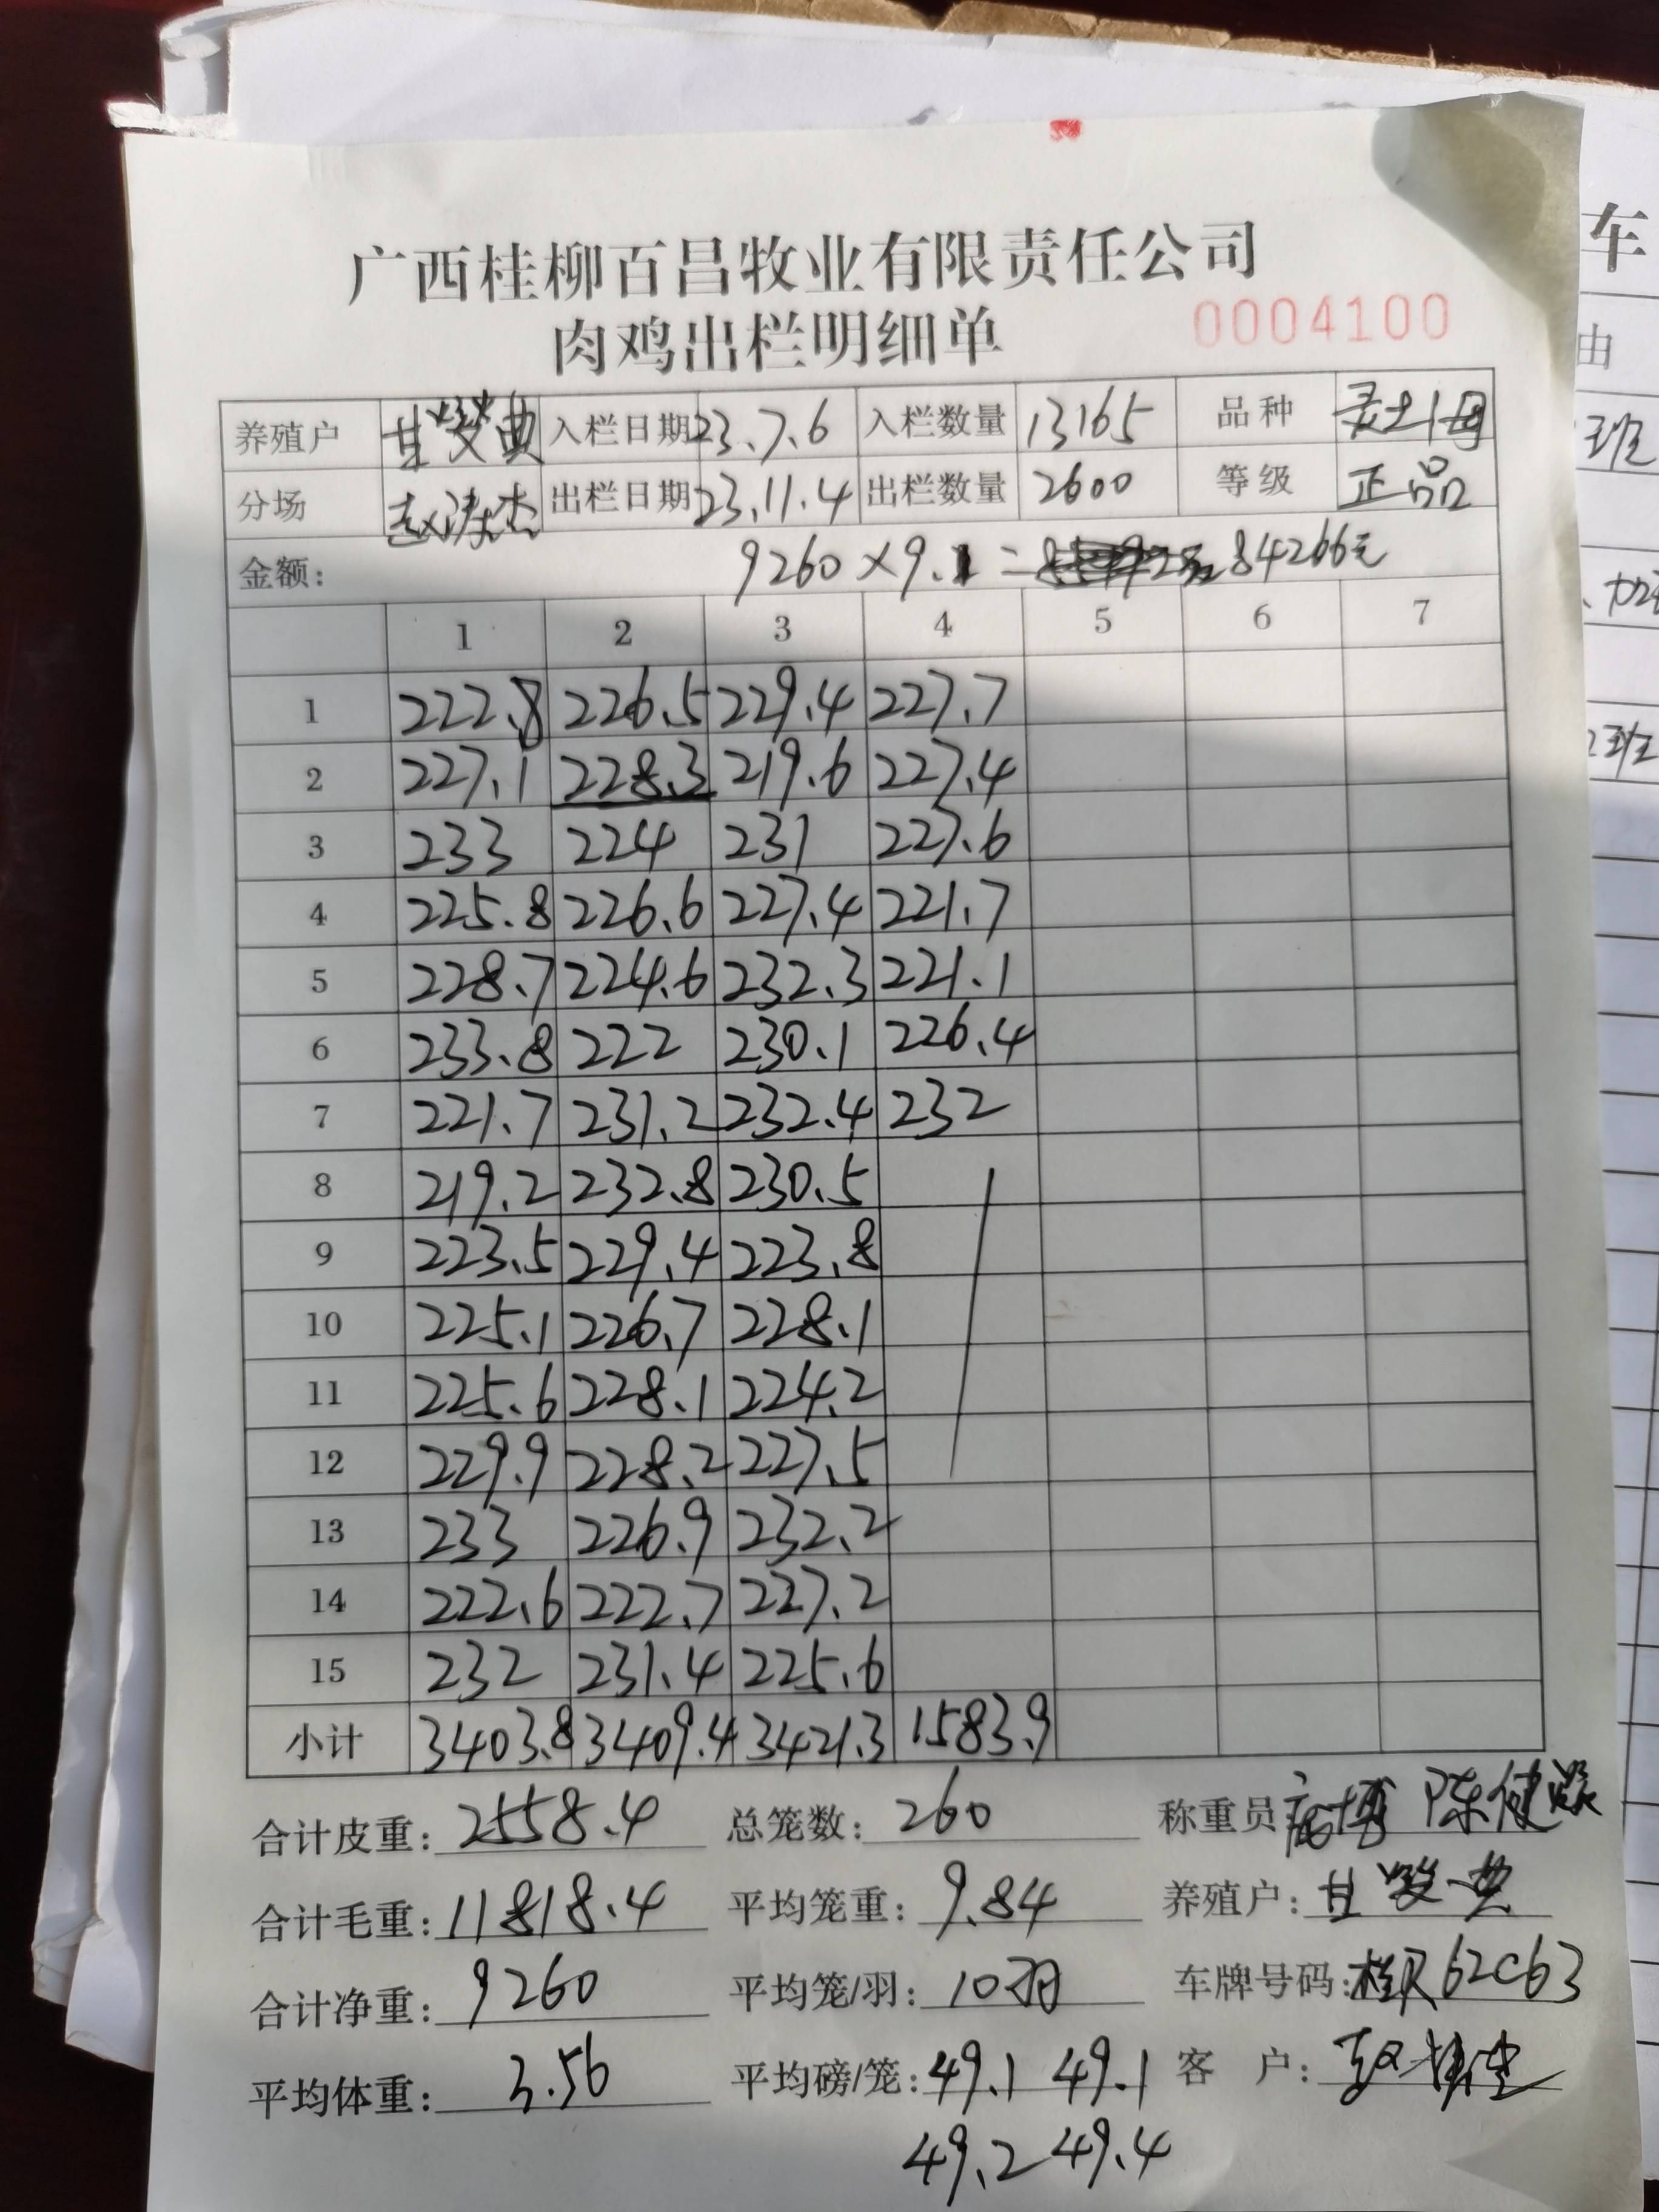 广西桂柳百昌牧业有限责任公司
肉鸡出栏明细单 0004100
养殖户 入栏日期 23.7.6 入栏数量 13165 品种
分场 出栏日期 23.11.4 出栏数量 2600 等级 正品
金额: 9260×9.1= 84266元
1 2 3 4 5 6 7
1 222.8 226.5 229.4 227.7
2 227.1 228.3 219.6 227.4
3 233 224 231 227.6
4 225.8 226.6 227.4 221.7
5 228.7 224.6 232.3 221.1
6 233.8 222 230.1 226.4
7 221.7 231.2 232.4 232
8 219.2 232.8 230.5
9 223.5 229.4 223.8
10 225.1 226.7 228.1
11 225.6 228.1 224.2
12 229.9 228.2 227.5
13 233 226.9 232.2
14 222.6 222.7 227.2
15 232 231.4 225.6
小计 3403.8 3409.4 3421.3 1583.9
合计皮重: 2558.4 总笼数: 260 称重员
合计毛重: 11818.4 平均笼重: 9.84 养殖户:
合计净重: 9260 平均笼/羽: 10羽 车牌号码: 62C63
平均体重: 3.56 平均磅/笼: 49.1 49.1 客户:
49.2 49.4
车
由
班
班